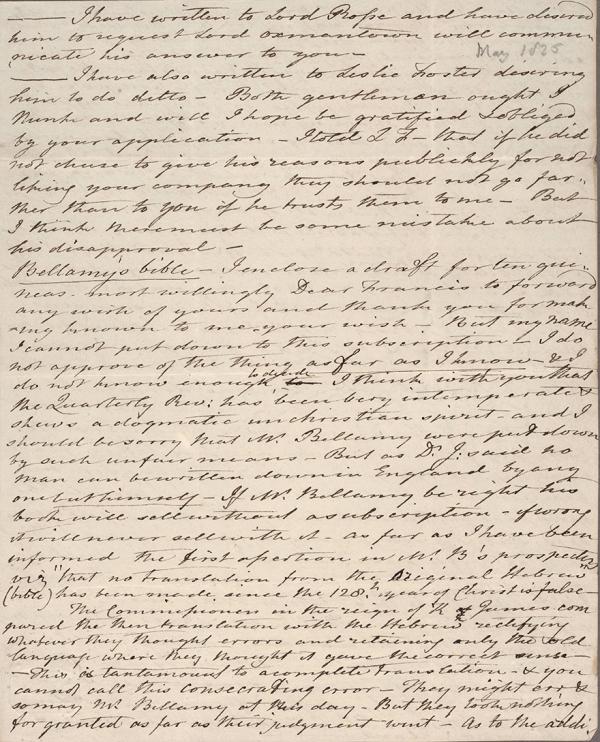 — I have written to Lord Rosse and have desired
him to request Lord Oxmantown will commu-
nicate his answer to you —
May 1825
— I have also written to Leslie Foster desiring
him to do ditto — Both gentleman ought I
thunk and will I hope be gratified & obliged
by your application — I told L F — that if he did
not chuse to give his reasons publickly for not
liking your company they should not go far-
ther than to you if he trusts them to me — But
I think there must be some mistake about
his disapproval —
Bellamy's bible — I enclose a draft for ten gui-
neas most willingly Dear Francis to forward
any wish of yours and thank you for mak
-ing known to me your wish — But my name
I cannot put down to this subscription — I do
not approve of the thing as far as I know — & I
do not know enough to decide I think with you that
the Quarterly Rev: has been very intemperate &
shews a dogmatic unchristian spirit — and I
should be sorry that Mr Bellamy were put down
by such unfair means — But as Dr J: said no
man can be written down in England by any
one but himself — If Mr Bellamy be right his
book will sell without a subscription — if wrong
it will never sell with it — as far as I have been
informed the first assertion in Mr B's prospectus
viz "that no translation from the original Hebrew"
(bible) has been made since the 128th year of Christ is false —
The Commissioners in the reign of K James com
pared the then translation with the Hebrew rectifying
whatever they thought errors and retaining only the old
language where they thought it gave the correct sense —
— This is tantamount to a complete translation — & you
cannot call this consecrating error — They might err &
so may Mr Bellamy at this day — But they took nothing
for granted as far as their judgment went — As to the addi